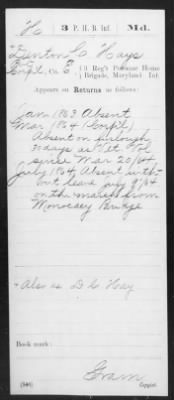 H 3 P. H. B. Inf. Md.
Denton C. Hays
Corpl, Co. E, 3 Reg't Potomac Home
Brigade, Maryland Inf.
Appears on Returns as follows:
Jan 1863 Absent
Mar 1864 (Corpl)
Absent on furlough
30 days as Vet. Vol
since Mar 20/64
July 1864, Absent with-
out leave July 9/64
on the march from
Monocacy Bridge
Also as D C Hay
Book mark:
(546) Copyist.